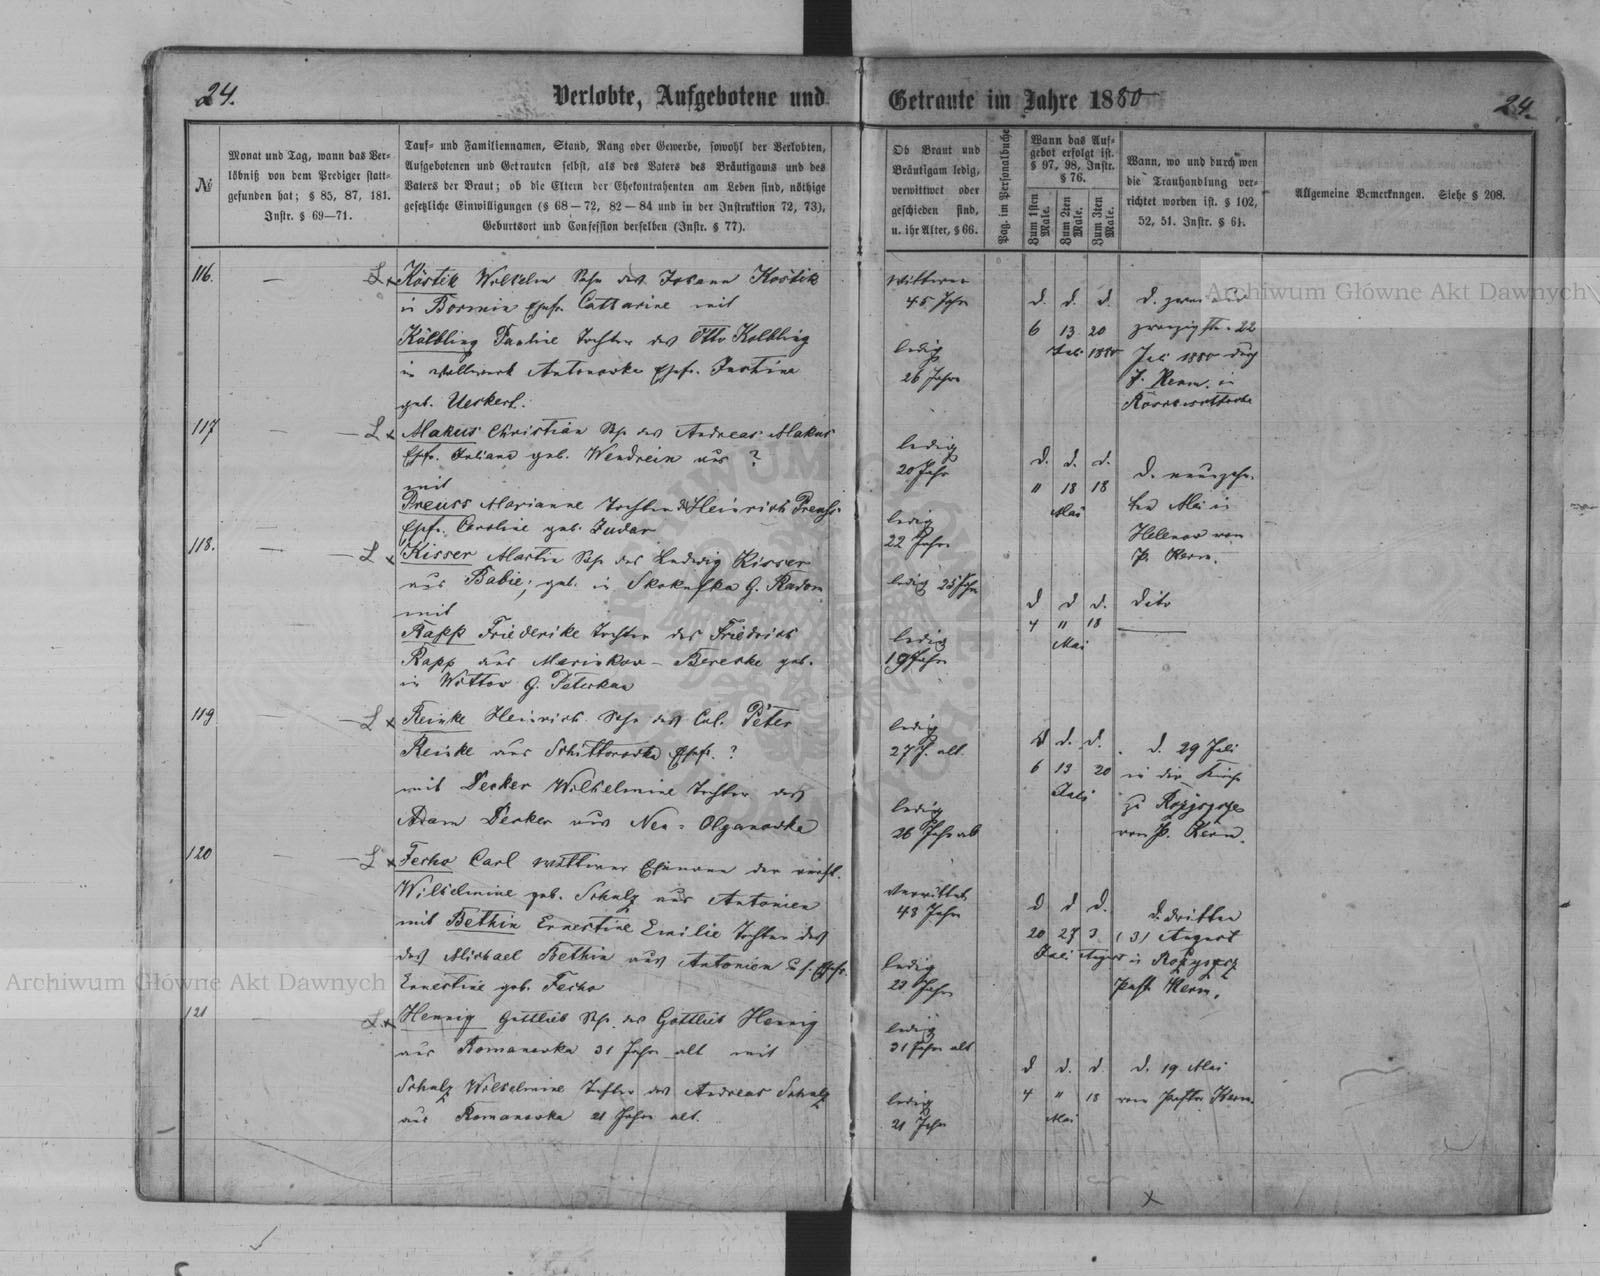 24.
Verlobte, Aufgebotene und Getraute im Jahre 1880
24.
№
Monat und Tag, wann das Ver-
löbniß von dem Prediger statt-
gefunden hat; § 85, 87, 181.
Instr. § 69—71.
Tauf- und Familiennamen, Stand, Rang oder Gewerbe, sowohl der Verlobten,
Aufgebotenen und Getrauten selbst, als des Vaters des Bräutigams und des
Vaters der Braut; ob die Eltern der Ehekontrahenten am Leben sind, nöthige
gesetzliche Einwilligungen (§ 68—72, 82—84 und in der Instruktion 72, 73),
Geburtsort und Confession derselben (Instr. § 77).
Ob Braut und
Bräutigam ledig,
verwittwet oder
geschieden sind,
u. ihr Alter, § 66.
Pag. im Personalbuche
Wann das Auf-
gebot erfolgt ist.
§ 97, 98, Instr.
§ 76.
Zum 1sten Male.
Zum 2ten Male.
Zum 3ten Male.
Wann, wo und durch wen
die Trauhandlung ver-
richtet worden ist. § 102,
52, 51. Instr. § 61.
Allgemeine Bemerknngen. Siehe § 208.
116.
L x Köstik Wilhelm Sohn des Johann Köstik
in Ehefr. Catharine mit
Kölbling Pauline Tochter des Otto Kolbling
in Antonowka Ehefr. Justine
geb. Ueckert.
45 Jahr
ledig
26 Jahre
d. d. d.
6 13 20
Juli 1880
zwanzigsten 22
Juli 1880 durch
P. Kerm. in
117
L x Makus Christian Sohn des Andreas Makus
Ehefr. Juliane geb. Wendrein aus ?
mit
Preuss Marianne Tochter d. Heinrich Preuss
Ehefr. Caroline geb. Judar
ledig
20 Jahr
ledig
22 Jahre
d. d. d.
11 18 18
Mai
d. neunzehn-
ten Mai in
Helenow von
P. Kerm.
118.
L x Kisser Martin Sohn des Ludwig Kisser
aus Babie, geb. in G. Radom
mit
Rapp Friederike Tochter des Friedrich
Rapp aus Marinkow - Berecke geb.
in Wittow G. Peterkau
ledig 25 Jahr
ledig
19 Jahre
d d d.
4 11 18
Mai
dito
119
L x Reinke Heinrich Sohn des Col. Peter
Reinke aus Ehefr. ?
mit Decker Wilhelmine Tochter des
Adam Decker aus Neu-Olganowka
ledig
27 J. alt.
ledig
26 Jahr alt
d d. d.
6 13 20
Juli
d. 29 Juli
in der Kirche
zu Rozyszcze
von P. Kerm.
120
L x Fecho Carl Wittwer Ehemann der verst.
Wilhelmine geb. Schulz aus Antonien
mit Bethin Ernestine Emilie Tochter des
des Michael Bethin aus Antonien u. s. Ehefr.
Ernestine geb. Fecho
Verwittwet
43 Jahre
ledig
23 Jahre
d d d.
20 27 3
Juli August
d. dritten
(3) August
in Rozyszcz
Past. Kerm.
121
L x Hennig Gottlieb Sohn des Gottlieb Hennig
aus Romanowka 31 Jahre alt mit
Schulz Wilhelmine Tochter des Andreas Schulz
aus Romanowka 21 Jahre alt.
ledig
31 Jahre alt
ledig
21 Jahr
d d. d
4 11 18
Mai
d. 19 Mai
vom Pastor Kerm.
Archiwum Główne Akt Dawnych
Archiwum Główne Akt Dawnych